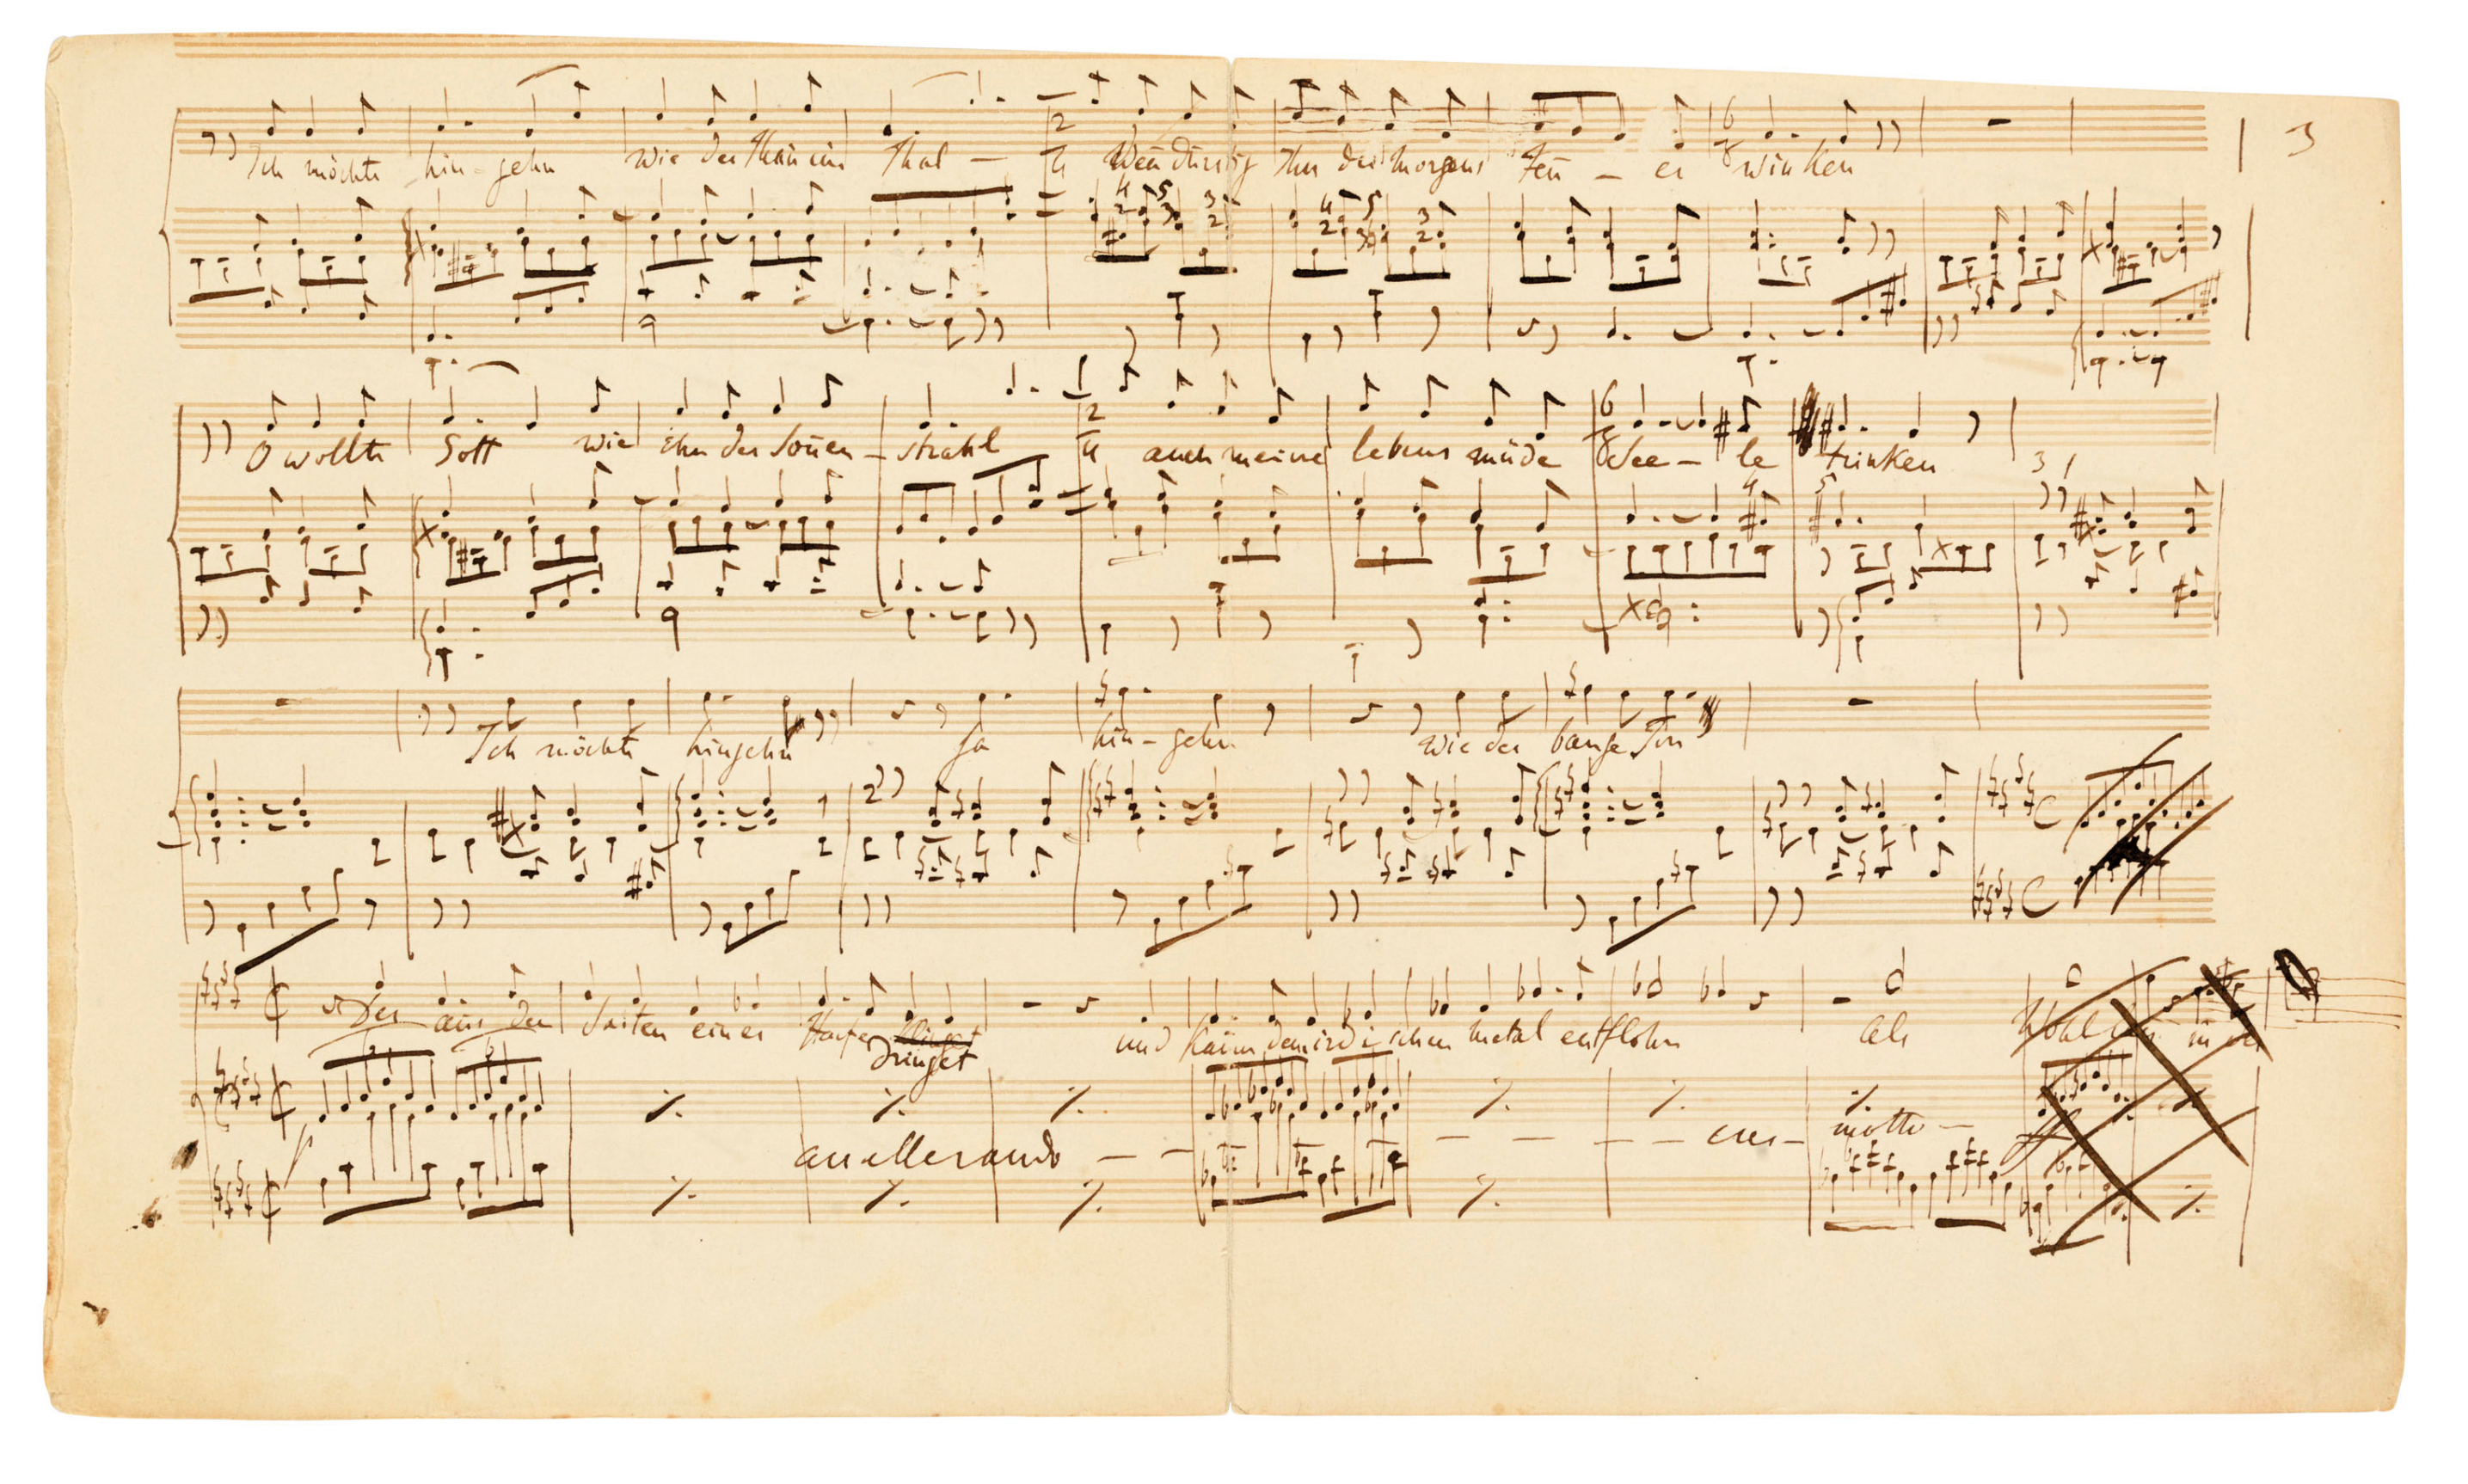 3
Ich möchte hin-gehn wie der Thau im Thal — Wen̄ dürstig Ihn des Morgens Feu — er winken
O wollte Gott wie ihn der Son̄en — strahl auch meine lebens müde See — le trinken
Ich möchte hingehn Ja hin-gehn wie der bange Ton
Der aus den Saiten einer Harfe klinget
dringet
und kaum dem irdischen Metal entflohn Als Wohl
accellerando — — — — — — cres — molto —